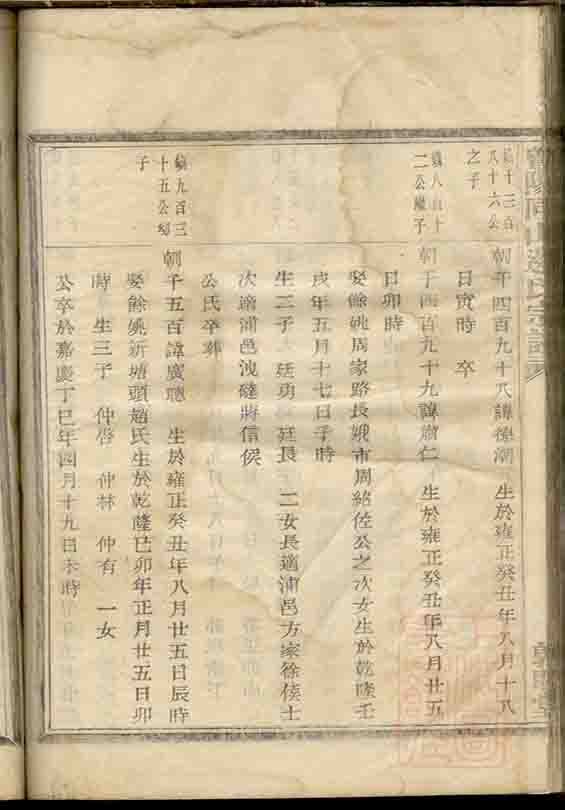 鎮十三百
八十六公
之子
朝千四百九十八諱徳潮　生於雍正癸丑年八月十八
日寅時　卒
鎮八百十
二公継子
朝千四百九十九諱肅仁　生於雍正癸丑年八月廿五
日卯時
娶餘姚周家路長娥市周紹佐公之次女生於乾隆壬
戌年五月十七日子時
生二子　廷勇　廷長　二女長適浦邑方家徐倐士
次適浦邑洩礎蔣信侯
公氏卒葬
鎮九百三
十五公幼
子
朝千五百諱廣聰　生於雍正癸丑年八月廿五日辰時
娶餘姚新塘頭趙氏生於乾隆己卯年正月廿五日卯
時　生三子　仲啓　仲林　仲有　一女
公卒於嘉慶丁巳年四月十九日未時